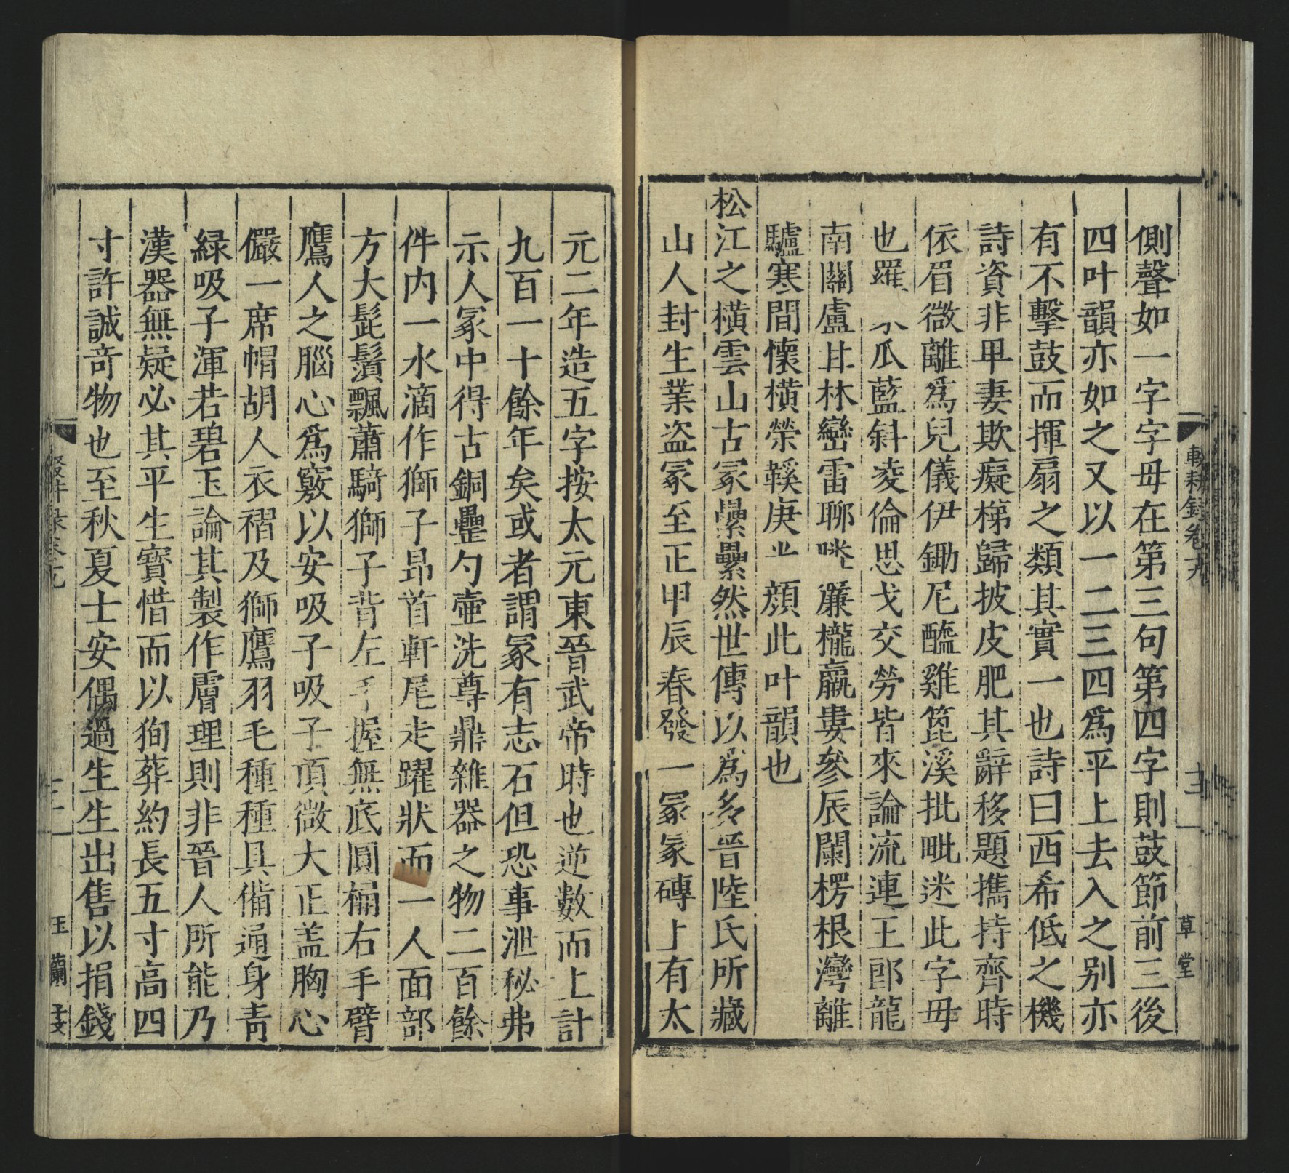 側聲如一字字母在第三句第四字則鼓節前三後
四叶韻亦如之又以一二三四爲平上去入之别亦
有不擊鼓而揮扇之類其實一也詩曰西希低之機
詩資非卑妻欺癡梯歸披皮肥其辭移題攜持齊時
依眉微離爲兒儀伊鋤尼醯雞篦溪批毗迷此字母
也羅 瓜藍斜凌倫思戈交勞皆來論流連王郎龍
南關盧甘林巒雷聊 亷櫳羸婁參辰闌楞根灣離
驢寒間懷橫榮鞵庚 顔此叶韻也
松江之橫雲山古冢纍纍然世傳以爲多晉陸氏所藏
山人封生業盗冢至正甲辰春發一冢冢磚上有太
元二年造五字按太元東晉武帝時也逆數而上計
九百一十餘年矣或者謂冢有志石但恐事泄秘弗
示人冢中得古銅罍勺壺洗尊鼎雜器之物二百餘
件内一水滴作獅子昂首軒尾走躍狀而一人面部
方大髭鬚飄蕭騎獅子背左手握無底圓桶右手臂
鷹人之腦心爲竅以安吸子吸子頂微大正盖胸心
儼一席帽胡人衣褶及獅鷹羽毛種種具備通身靑
緑吸子渾若碧玉論其製作膚理則非晉人所能乃
漢器無疑必其平生寶惜而以狥葬約長五寸高四
寸許誠奇物也至秋夏士安偶過生生出售以捐錢
輟耕錄卷十九
草堂
玉蘭